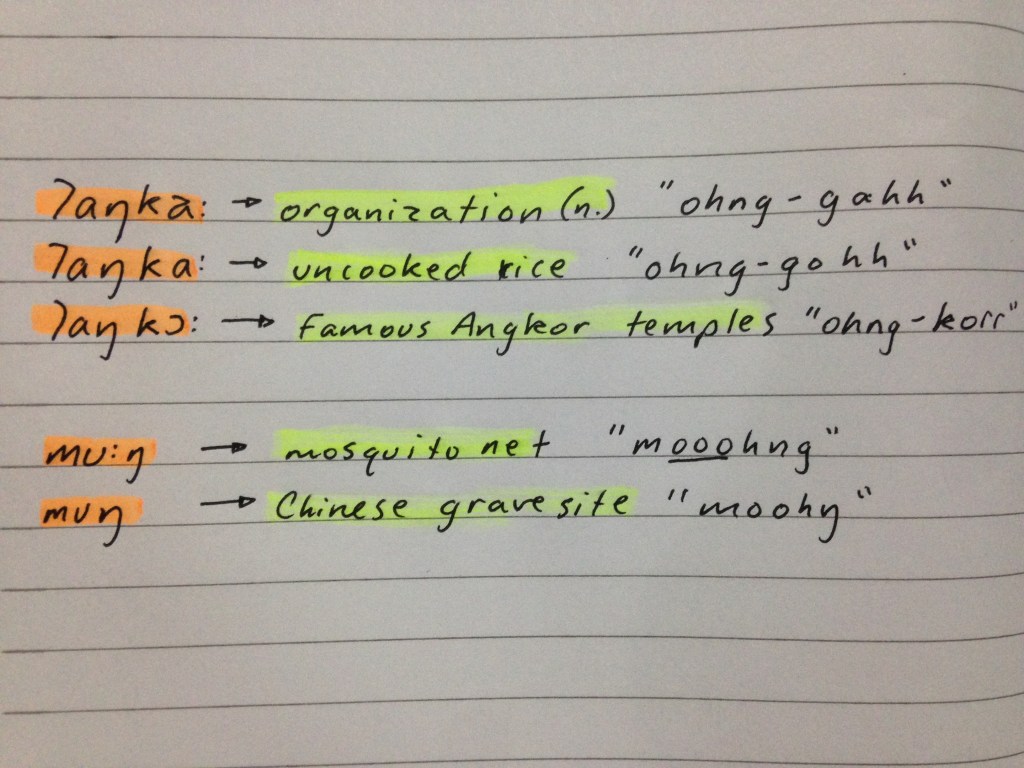 ʔaŋkā: → organization (n.) "ohng-gahh"
ʔaŋka: → uncooked rice "ohng-gohh"
ʔaŋkɔ: → famous Angkor temples "ohng-korr"
mu:ŋ → mosquito net "moooohng"
muŋ → Chinese grave site "moohŋ"